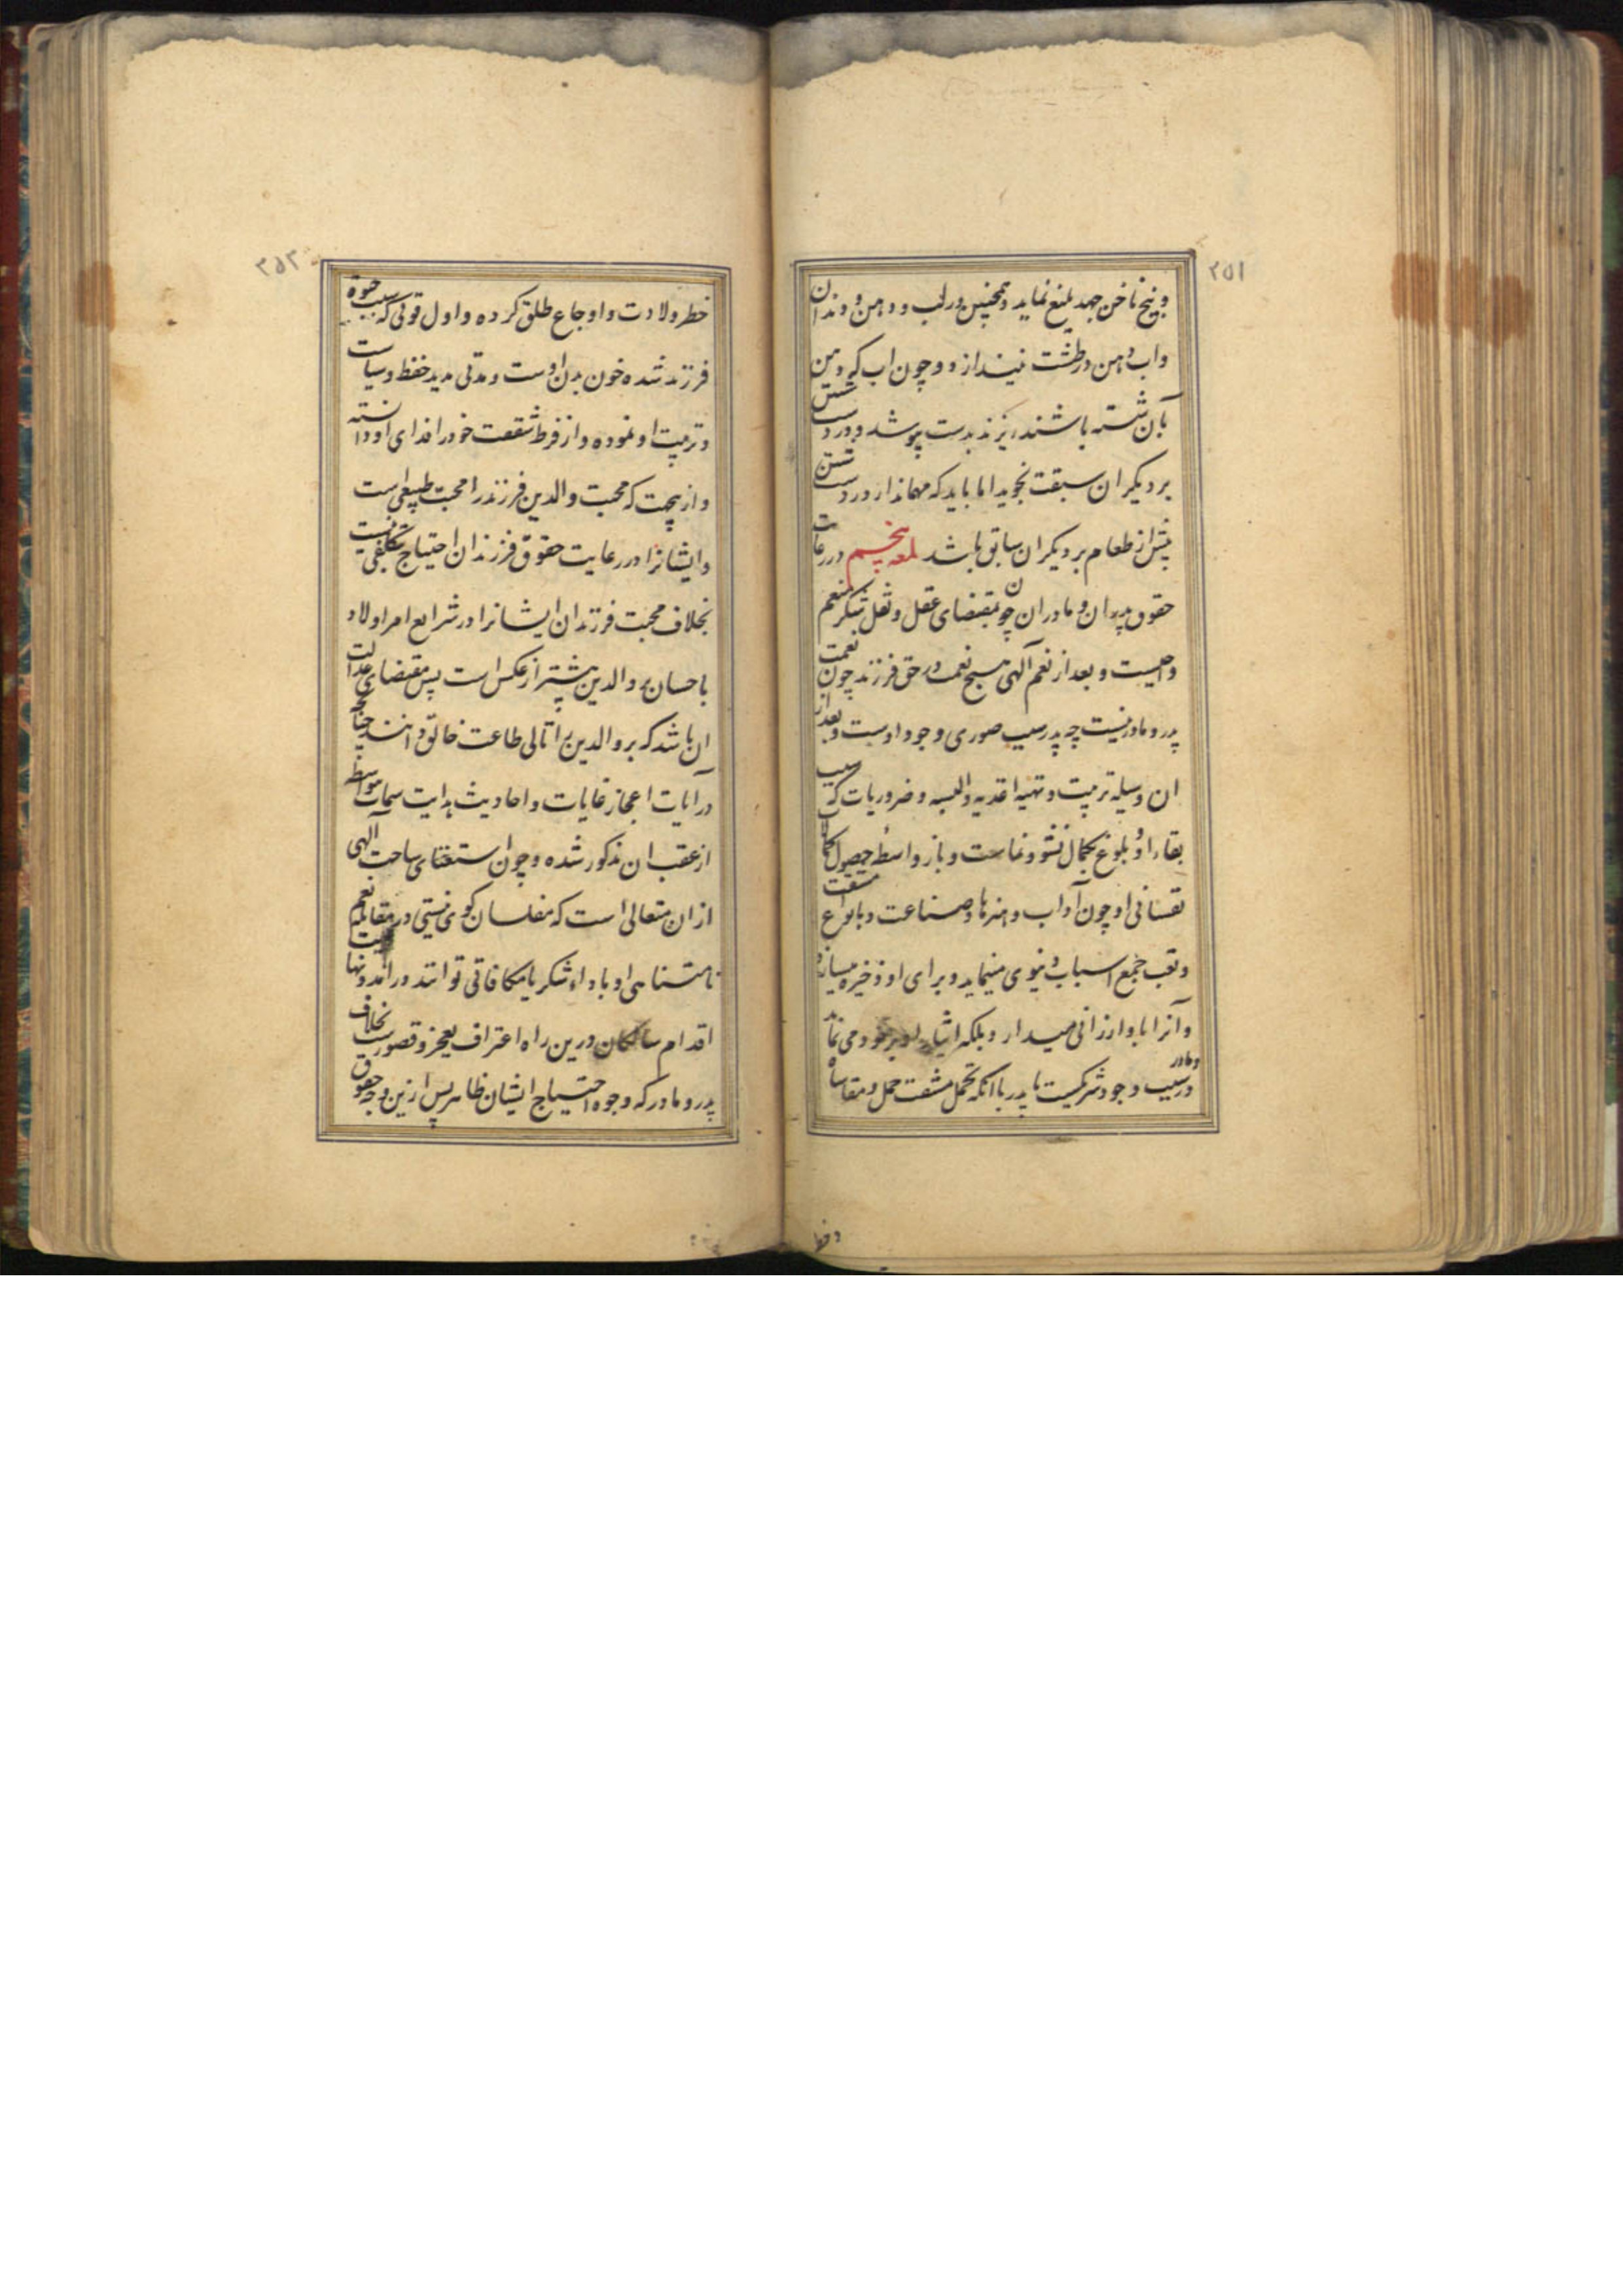 ۲۵۱
و بیخ ناخن جهد بلیغ نماید و همچنین در لب و دهن و دندان
واب دهن در طشت نیندازد و چون اب که دهن
بآن شسته باشند بریزند بدست پوشد و در دست شستن
بر دیگران سبقت نجوید اما باید که مهماندار در دست شستن
پیش از طعام بر دیگران سابق باشد لمعه پنجم در رعایت
حقوق پدران و مادران چون بمقتضای عقل و نقل شکر منعم
واجبست و بعد از نعم آلهی هیچ نعمت در حق فرزند چون نعمت
پدر و مادر نیست چه پدر سبب صوری وجود اوست و بعد از
ان وسیله تربیت و تهیه اغدیه والبسه و ضروریات که سبب
بقاء او و بلوغ بکمال نشو و نماست و باز واسطه حصول کمالات
نفسانی او چون آداب و هنرها و صناعت و بانواع مشقت
و تعب جمع اسباب دنیوی مینماید و برای او ذخیره میسازد
و آنرا باو ارزانی میدارد و بلکه ایثار او بر خود می نماید
و مادر در سبب وجود شریکست با پدر با انکه تحمل مشقت حمل و مقاساه
و خطر
۲۵۲
خطر ولادت و اوجاع طلق کرده و اول قوتی که سبب حیوة
فرزند شده خون بدن اوست و مدتی مدید حفظ و سیاست
و تربیت او نموده و از فرط شفقت خود را فدای او دانسته
و ازینجهت که محبت والدین فرزند را محبت طبیعی است
و ایشانرا در رعایت حقوق فرزندان احتیاج بتکلفی نیست
بخلاف محبت فرزندان ایشانرا در شرایع امر اولاد
باحسان والدین بیشتر از عکس است پس مقتضای عدالت
ان باشد که بر والدین را تالی طاعت خالق دانند چنانچه
در آیات اعجاز غایات و احادیث هدایت سمات بواسطه
از عقب ان مذکور شده و چون استغنای ساحت الهی
ازان متعالی است که مفلسان کوی نیستی در مقابله نعم
نامتناهی او باداء شکر یا مکافاتی توانند در امد و نهایت
اقدام سالکان درین راه اعتراف بعجز و قصورست بخلاف
پدر و مادر که وجوه احتیاج ایشان ظاهر پس ازین وجه حقوق